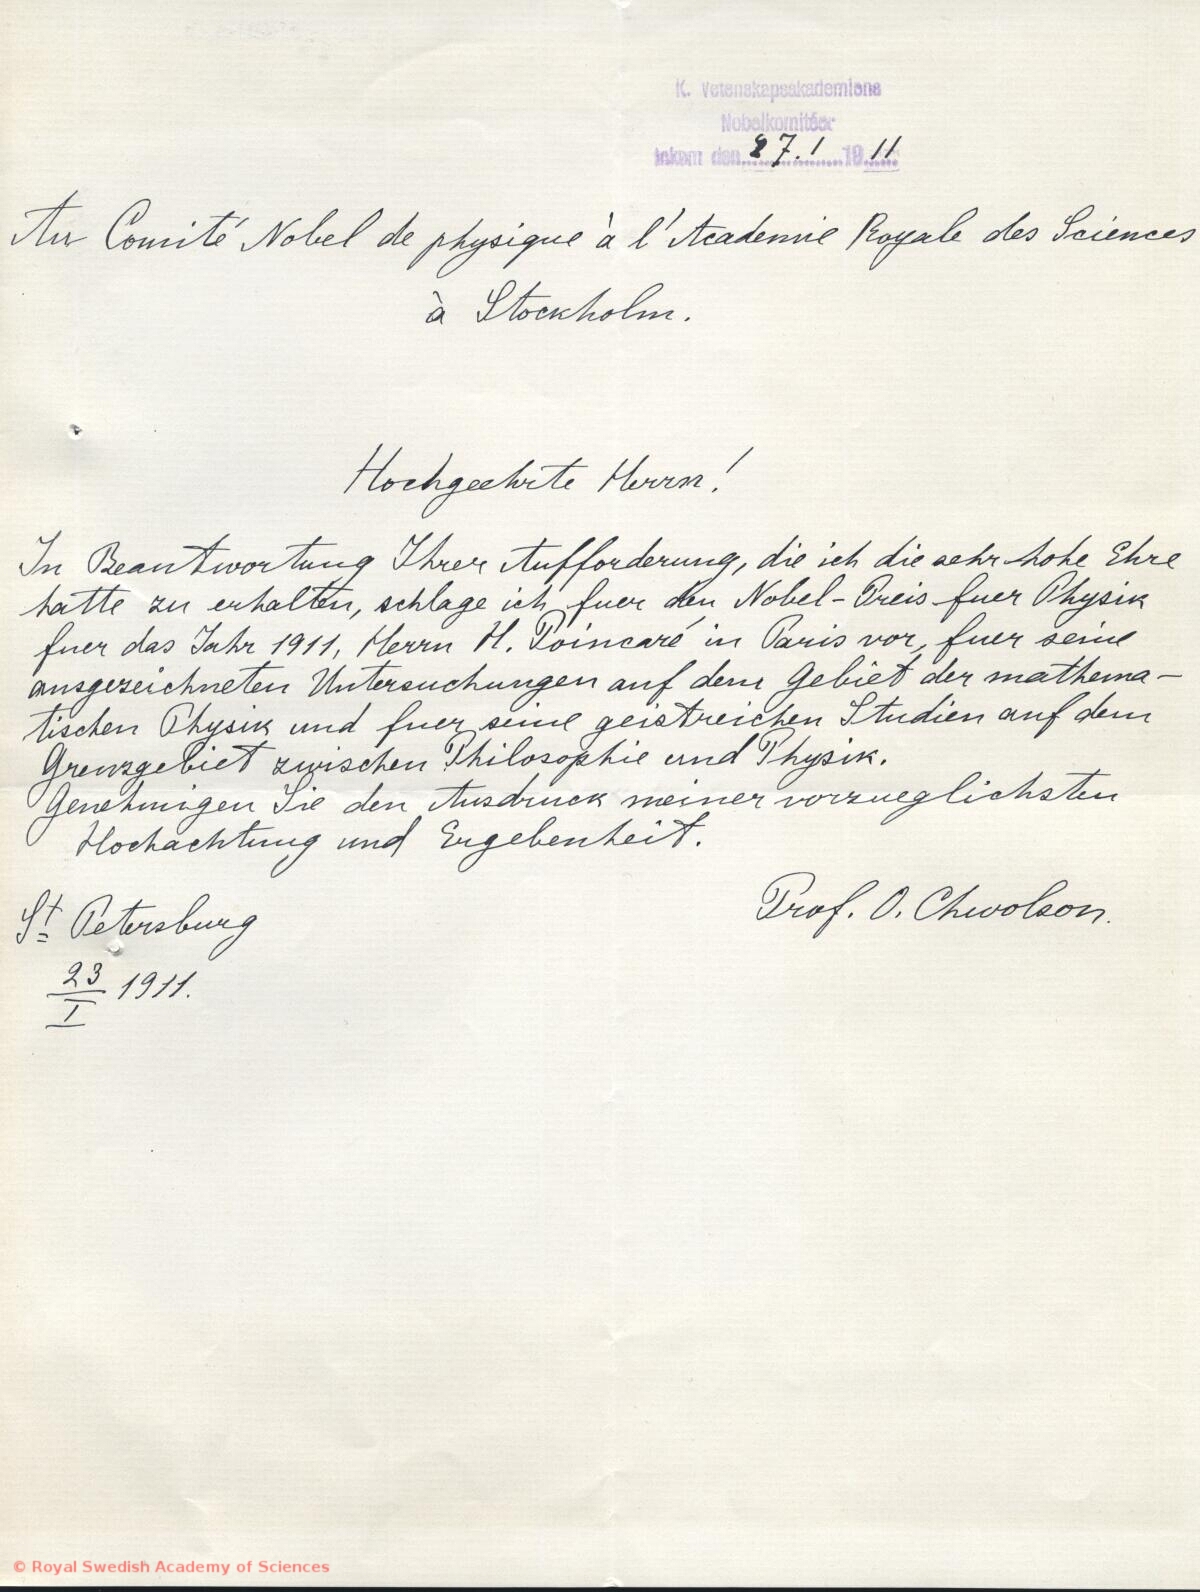 K. Vetenskapsakademiens
Nobelkomitéer
Inkom den 27.1 1911
Au Comité Nobel de physique à l'Academie Royale des Sciences
à Stockholm.
Hochgeehrte Herrn!
In Beantwortung Ihrer Aufforderung, die ich die sehr hohe Ehre
hatte zu erhalten, schlage ich fuer den Nobel-Preis fuer Physik
fuer das Jahr 1911, Herrn H. Poincaré in Paris vor, fuer seine
ausgezeichneten Untersuchungen auf dem Gebiet der mathema-
tischen Physik und fuer seine geistreichen Studien auf dem
Grenzgebiet zwischen Philosophie und Physik.
Genehmigen Sie den Ausdruck meiner vorzueglichsten
Hochachtung und Ergebenheit.
Prof. O. Chwolson.
St Petersburg
23/I 1911.
© Royal Swedish Academy of Sciences